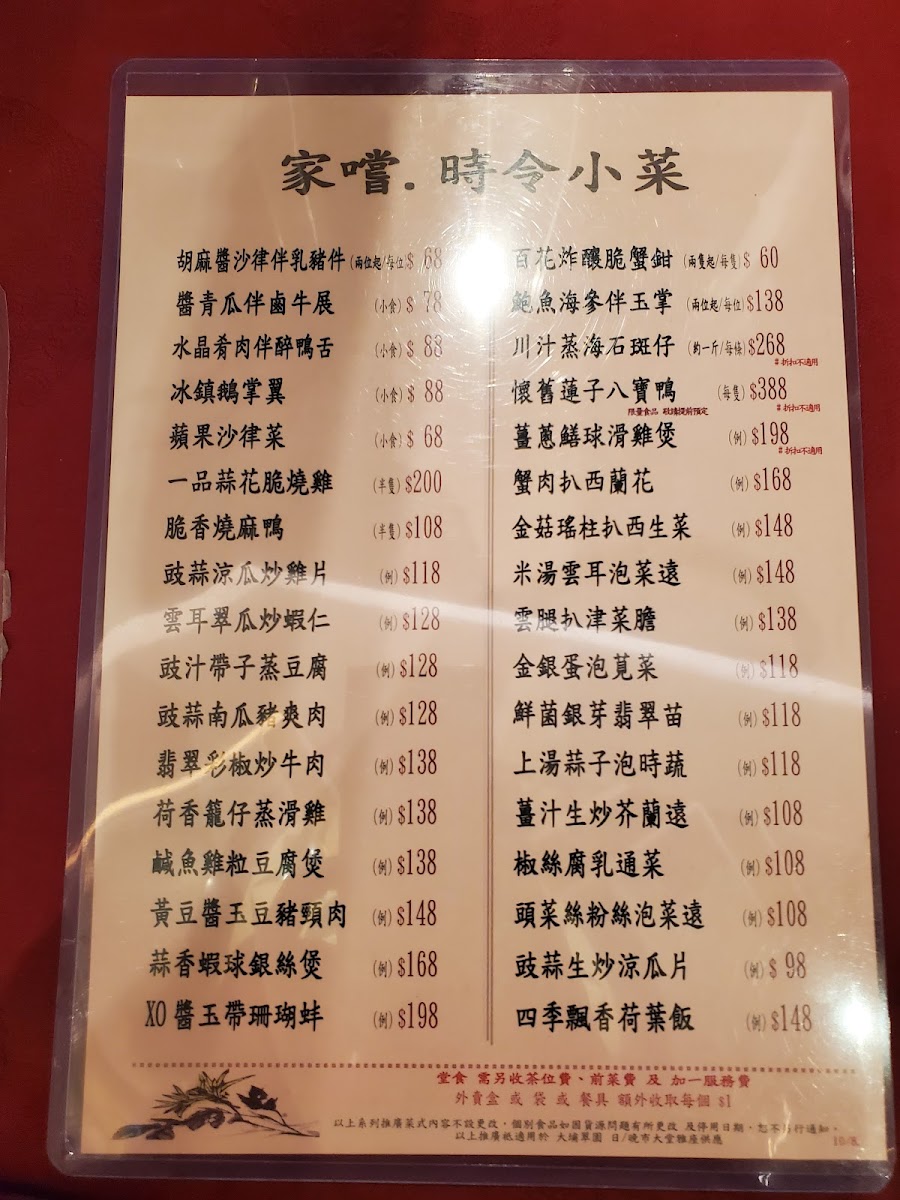 家嚐.時令小菜
胡麻醬沙律伴乳豬件(兩位起/每位)$ 68
醬青瓜伴鹵牛展 (小食) $ 78
水晶肴肉伴醉鴨舌 (小食) $ 88
冰鎮鵝掌翼 (小食) $ 88
蘋果沙律菜 (小食) $ 68
一品蒜花脆燒雞 (半隻) $200
脆香燒麻鴨 (半隻) $108
豉蒜涼瓜炒雞片 (例) $118
雲耳翠瓜炒蝦仁 (例) $128
豉汁帶子蒸豆腐 (例) $128
豉蒜南瓜豬爽肉 (例) $128
翡翠彩椒炒牛肉 (例) $138
荷香籠仔蒸滑雞 (例) $138
鹹魚雞粒豆腐煲 (例) $138
黃豆醬玉豆豬頸肉 (例) $148
蒜香蝦球銀絲煲 (例) $168
XO 醬玉帶珊瑚蚌 (例) $198
百花炸釀脆蟹鉗 (兩隻起/每隻) $ 60
鮑魚海參伴玉掌 (兩位起/每位) $138
川汁蒸海石斑仔 (約一斤/每條) $268
#折扣不適用
懷舊蓮子八寶鴨 (每隻) $388
限量食品 敬請提前預定 #折扣不適用
薑蔥鱔球滑雞煲 (例) $198
#折扣不適用
蟹肉扒西蘭花 (例) $168
金菇瑤柱扒西生菜 (例) $148
米湯雲耳泡菜遠 (例) $148
雲腿扒津菜膽 (例) $138
金銀蛋泡莧菜 (例) $118
鮮菌銀芽翡翠苗 (例) $118
上湯蒜子泡時蔬 (例) $118
薑汁生炒芥蘭遠 (例) $108
椒絲腐乳通菜 (例) $108
頭菜絲粉絲泡菜遠 (例) $108
豉蒜生炒涼瓜片 (例) $ 98
四季飄香荷葉飯 (例) $148
堂食 需另收茶位費、前菜費 及 加一服務費
外賣盒 或 袋 或 餐具 額外收取每個 $1
以上系列推廣菜式內容不設更改，個別食品如因貨源問題有所更改 及停用日期，恕不另行通知。
以上推廣祇適用於 大埔軍園 日/晚市大堂雅座供應
10/8